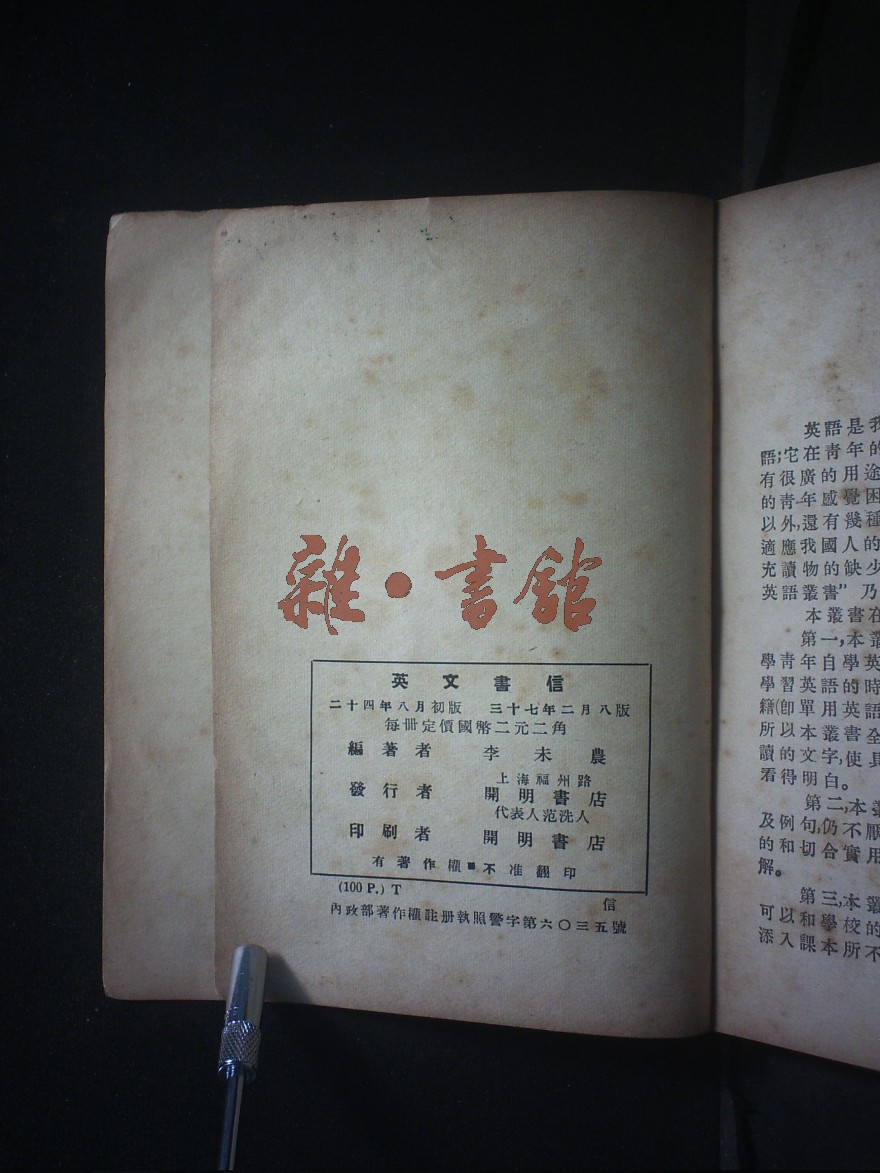 雜·書館
英文書信
二十四年八月初版 三十七年二月八版
每冊定價國幣二元二角
編著者 李未農
上海福州路
發行者 開明書店
代表人范洗人
印刷者 開明書店
有著作權■不准翻印
(100 P.) T 信
內政部著作權註册執照警字第六〇三五號
英語是我
語;它在青年的
有很廣的用途
的靑年感覺困
以外,還有幾種
適應我國人的
充讀物的缺少
英語叢書”乃
本叢書在
第一,本叢
學靑年自學英
學習英語的時
籍(卽單用英語
所以本叢書全
讀的文字,使具
看得明白。
第二,本叢
及例句,仍不厭
的和切合實用
解。
第三,本叢
可以和學校的
添入課本所不